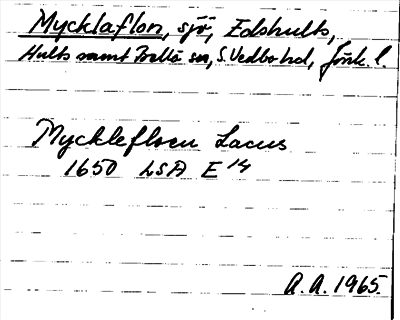 Mycklaflon, sjö, Edshults,
Hults samt Bellö snr, S. Vedbo hd, Jönk. l.
Mycklefloen Lacus
1650 LSA E 14
A.A. 1965.